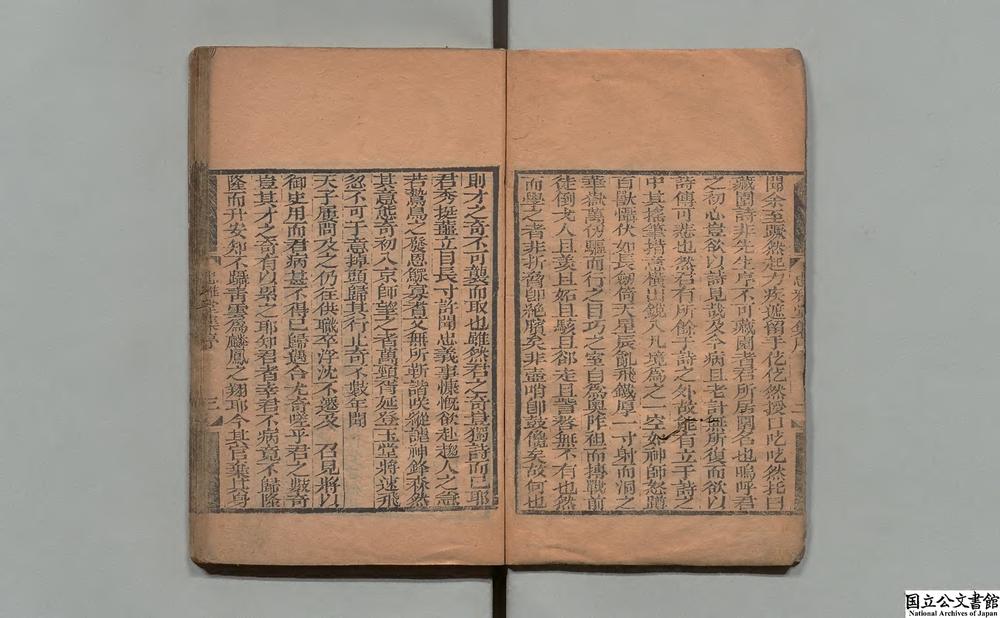 聞余至驟然起力疾遮留手仡仡然授口吃吃然托曰
藏園詩非先生序不可藏園者君所居園名也嗚呼君
之初心豈欲以詩見哉及今病且老計無所復而欲以
詩傳可悲也然君有所餘于詩之外故能有立于詩之
中其搖筆措意橫出銳入凡境爲之一空如神師怒蹲
百獸懾伏如長劍倚天星辰亂飛鐵厚一寸射而洞之
華嶽萬仞驅而行之目巧之室自爲奧阼袒而搏戰前
徒倒戈人且羨且妬且駭且卻走且訾謷無不有也然
而學之者非折脅卽絶臏矣非壺哨卽鼓儳矣故何也
則才之奇不可襲而取也雖然君之奇豈獨詩而已耶
君秀挺薼立目長寸許聞忠義事慷慨欲赴趨人之急
若鷙鳥之發恩鰥寡耆艾無所靳諧咲縱謔神鋒森然
其意態奇初入京師望之者萬頸胥延登玉堂將速飛
忽不可于意掉頭歸其行止奇不數年間
天子屢問及之仍往供職卒浮沈不遷及 召見將以
御史用而君病甚不得已歸遇合尤奇嗟乎君之數奇
豈其才之奇有以累之耶知君者幸君不病竟不歸隆
隆而升安知不躡靑雲爲麟鳳之翔耶今其官棄其身
三
國立公文書館
National Archives of Japan